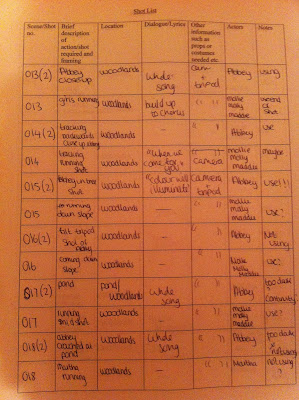 Shot List
Scene/Shot no. Brief description of action/shot required and framing Location Dialogue/Lyrics Other information such as props or costumes needed etc. Actors Notes
013(2) Abbey closeup woodlands whole song cam + tripod Abbey using
013 girls running woodlands build up to chorus " " mollie molly maddie
014(2) tracking backwards close up Woodlands – " " Abbey use
014 tracking running shot Woodlands camera mollie molly maddie maybe
015(2) Woodlands "colour will illuminate" camera + tripod Abbey use!!!
015 running down slope Woodlands – " " mollie molly maddie use
016(2) shot of Woodlands – " " Abbey Not using
016 coming down slope woodlands – " " Molly Maddie use?
017(2) pond pond/woodlands whole song " " Abbey too dark continuity
017 running shot woodlands – " " mollie molly maddie use?
018(2) abbey crouched at pond woodlands whole song " " Abbey too dark not using
018 martha running woodlands – " " Martha not using